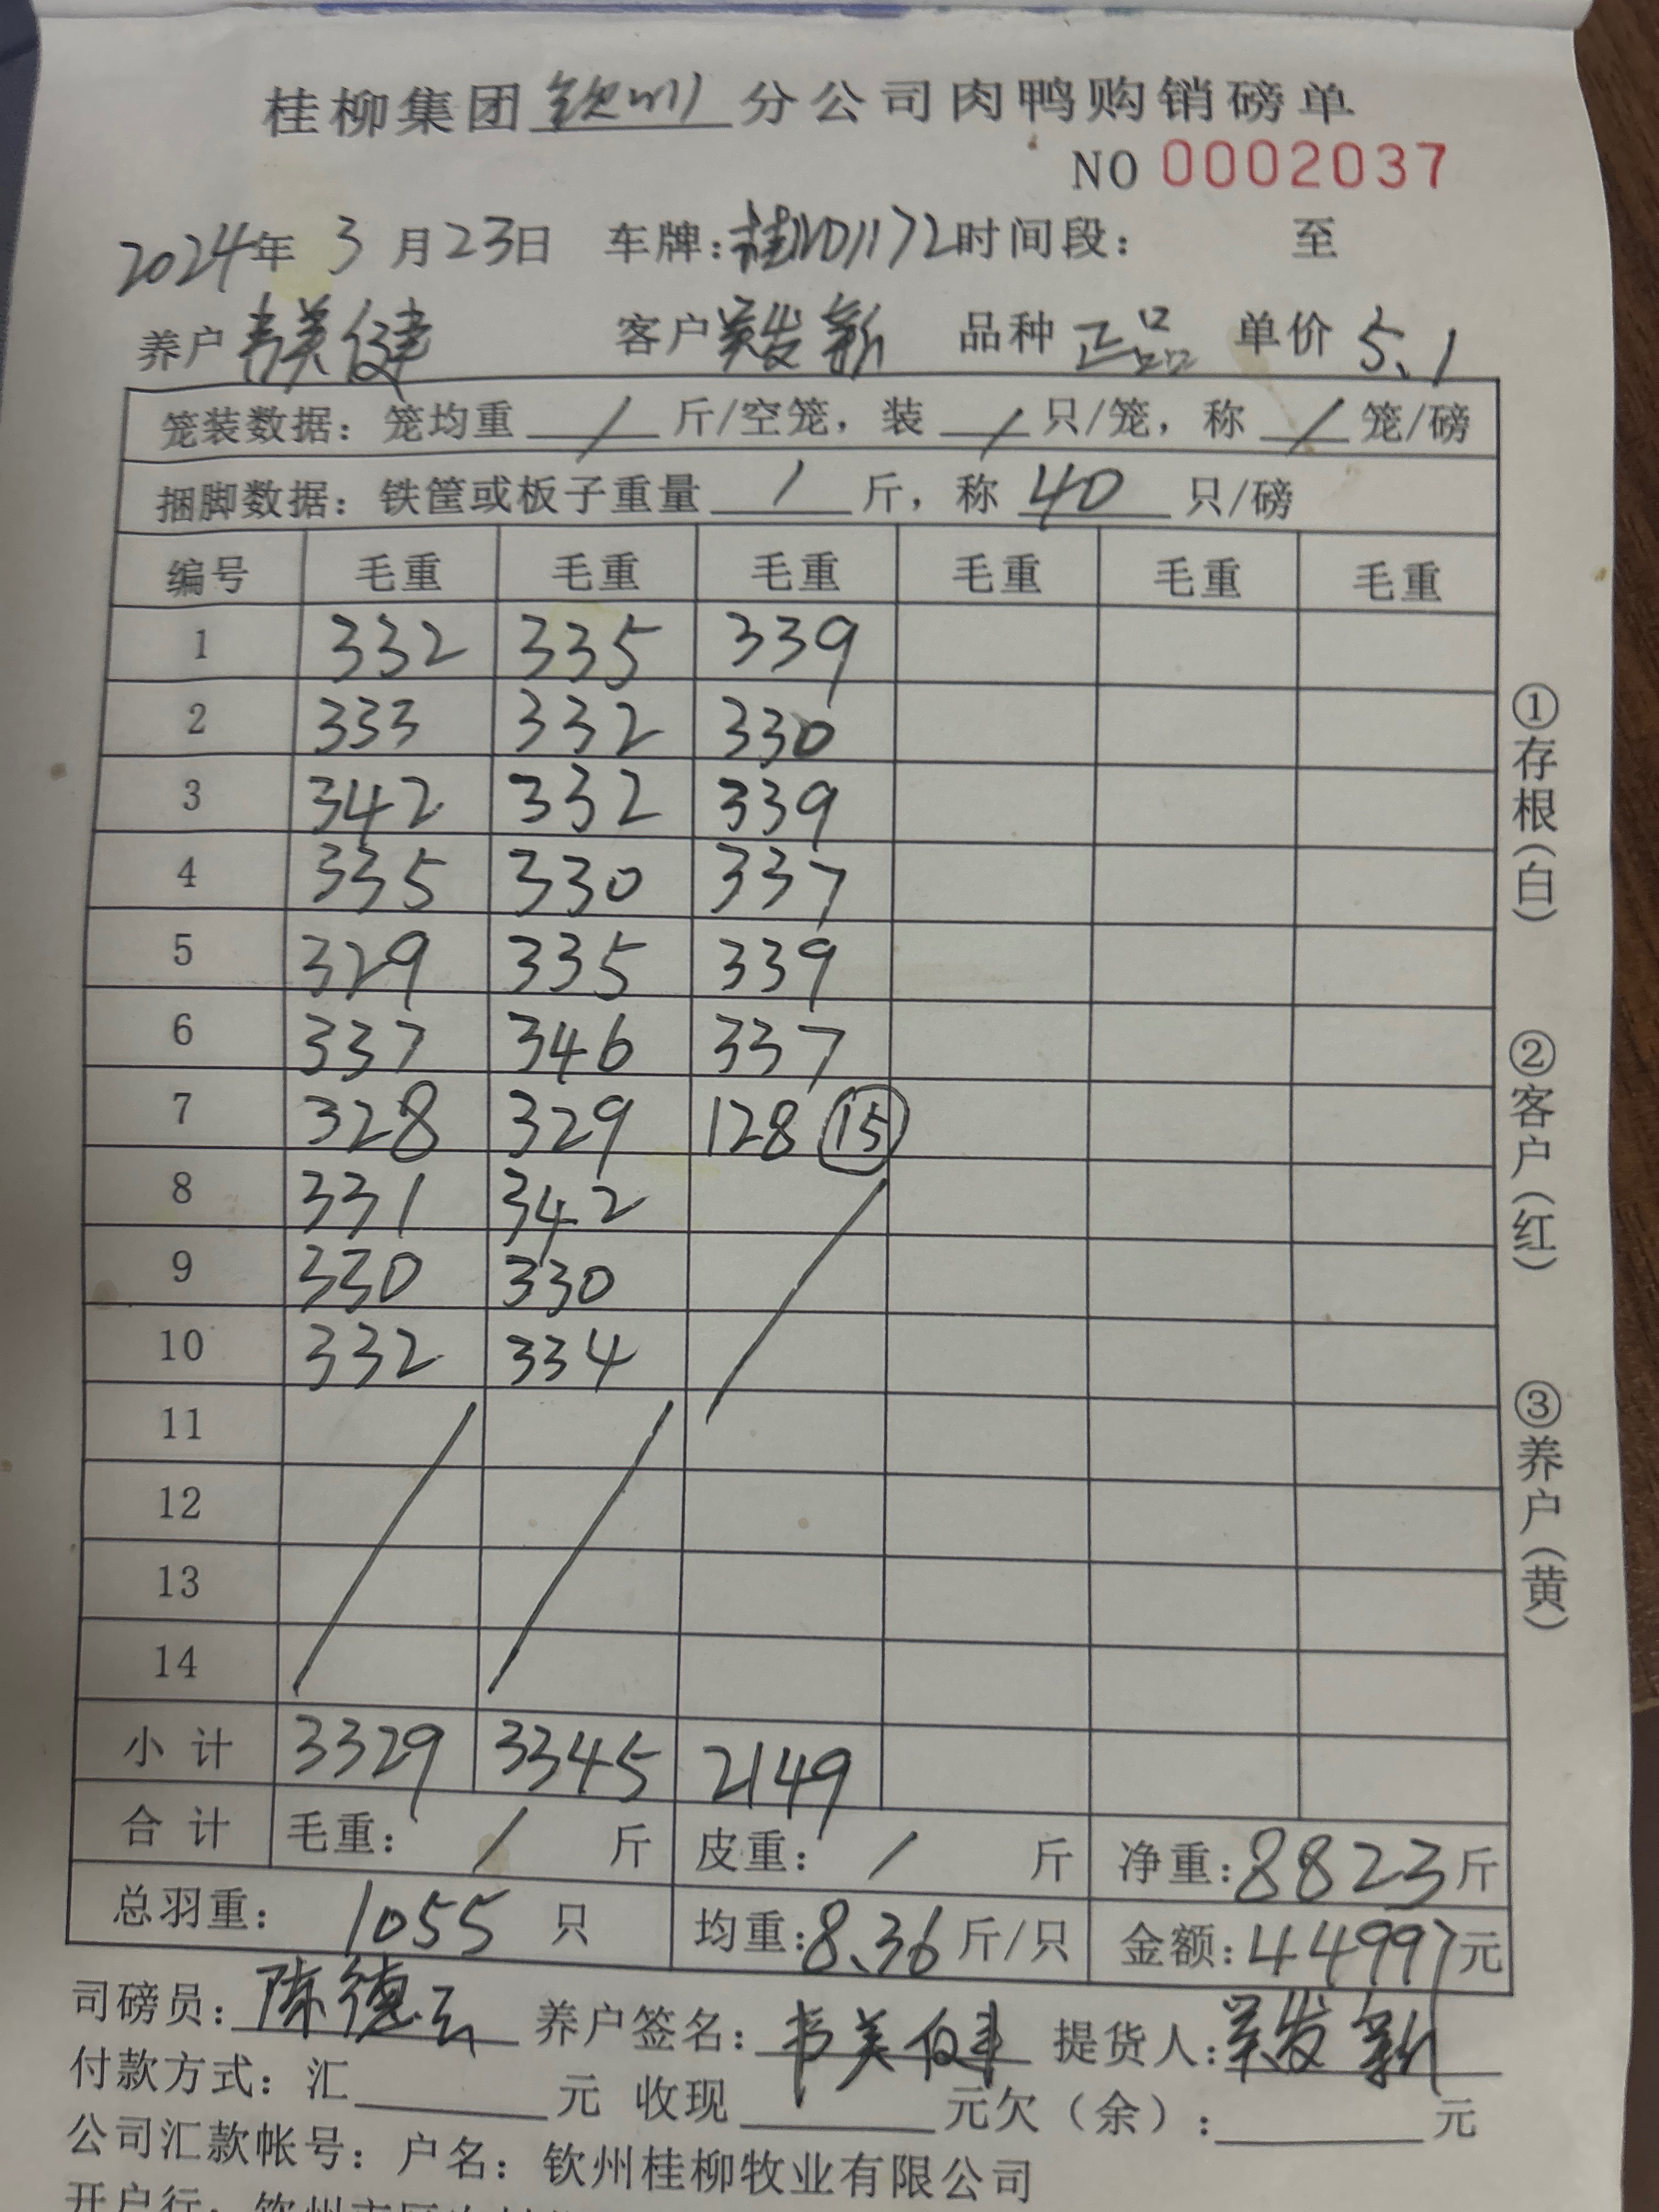 桂柳集团钦州分公司肉鸭购销磅单
NO 0002037
2024年 3月23日 车牌:桂 时间段: 至
养户韦美健 客户 发新 品种 正品 单价 5.1
笼装数据: 笼均重 / 斤/空笼, 装 / 只/笼, 称 / 笼/磅
捆脚数据: 铁筐或板子重量 / 斤, 称 40 只/磅
编号 毛重 毛重 毛重 毛重 毛重 毛重
1 332 335 339
2 333 332 330
3 342 332 339
4 335 330 337
5 329 335 339
6 337 346 337
7 328 329 128 ⑮
8 331 342
9 330 330
10 332 334
11
12
13
14
小计 3329 3345 2149
合计 毛重: / 斤 皮重: / 斤 净重:8823斤
总羽重: 1055 只 均重:8.36斤/只 金额:44997元
司磅员:陈德云 养户签名:韦美健 提货人: 发新
付款方式: 汇 元 收现 元欠(余): 元
公司汇款帐号: 户名: 钦州桂柳牧业有限公司
开户行:
①存根(白)
②客户(红)
③养户(黄)